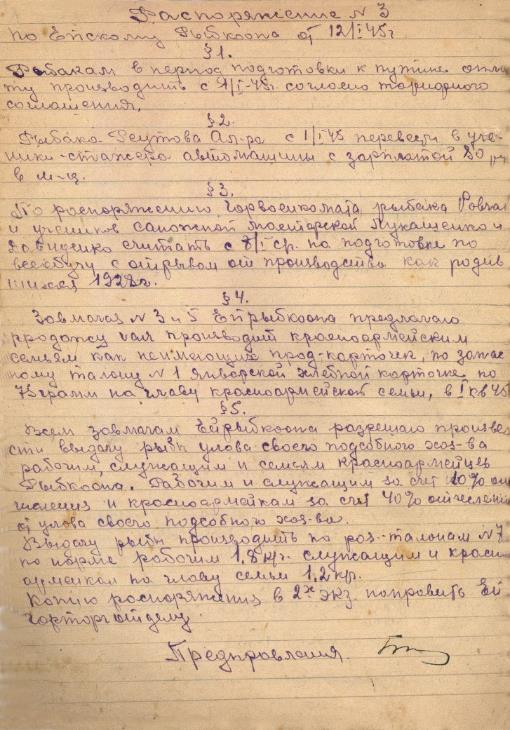 Распоряжение № 3
по Ейскому Рыбкоопа от 12/I-45г
§ 1.
Рыбакам в период подготовки к путине опла
ту производить с 1/I-45г. согласно тарифного
соглашения.
§ 2.
Рыбака Реутова Ал-ра с 1/I-45 перевести в уче
ники-стажера автомашины с зарплатой 80
в м-ц.
§ 3.
По роспоряжению Горвоенкомата рыбака
и учеников сапожной мастерской Лукашенко и
Давиденко считать с 8/I ср. по подготовке по
всеобучу с отрывом от производства как родив
шихся 1928г.
§ 4.
Завмагам № 3 и 5 Ейрыбкоопа предлагаю
продажу чая производит красноармейским
семьям как неимеющих прод-карточек, по запас
ному талону № 1 январской хлебной карточке по
75 грамм на главу красноармейской семьи, в I кв 45
§ 5.
Всем завмагам Ейрыбкоопа разрешаю произве
сти выдачу рыбы улова своего подсобного хоз-ва
рабочим, служащим и семьям красноармейцев
Рыбкоопа. Рабочим и служащим за счет 10% от
числения и красноармейкам за счет 40% отчеслени
от улова своего подсобного хоз-ва.
Выдачу рыбы производить по роз-талонам № 7
по норме рабочим 1,8 кгр. служащим и красн
армейкам по главу семьи 1,2 кгр.
Копию роспоряжения в 2х экз направить Ей
горторготделу.
Предправления